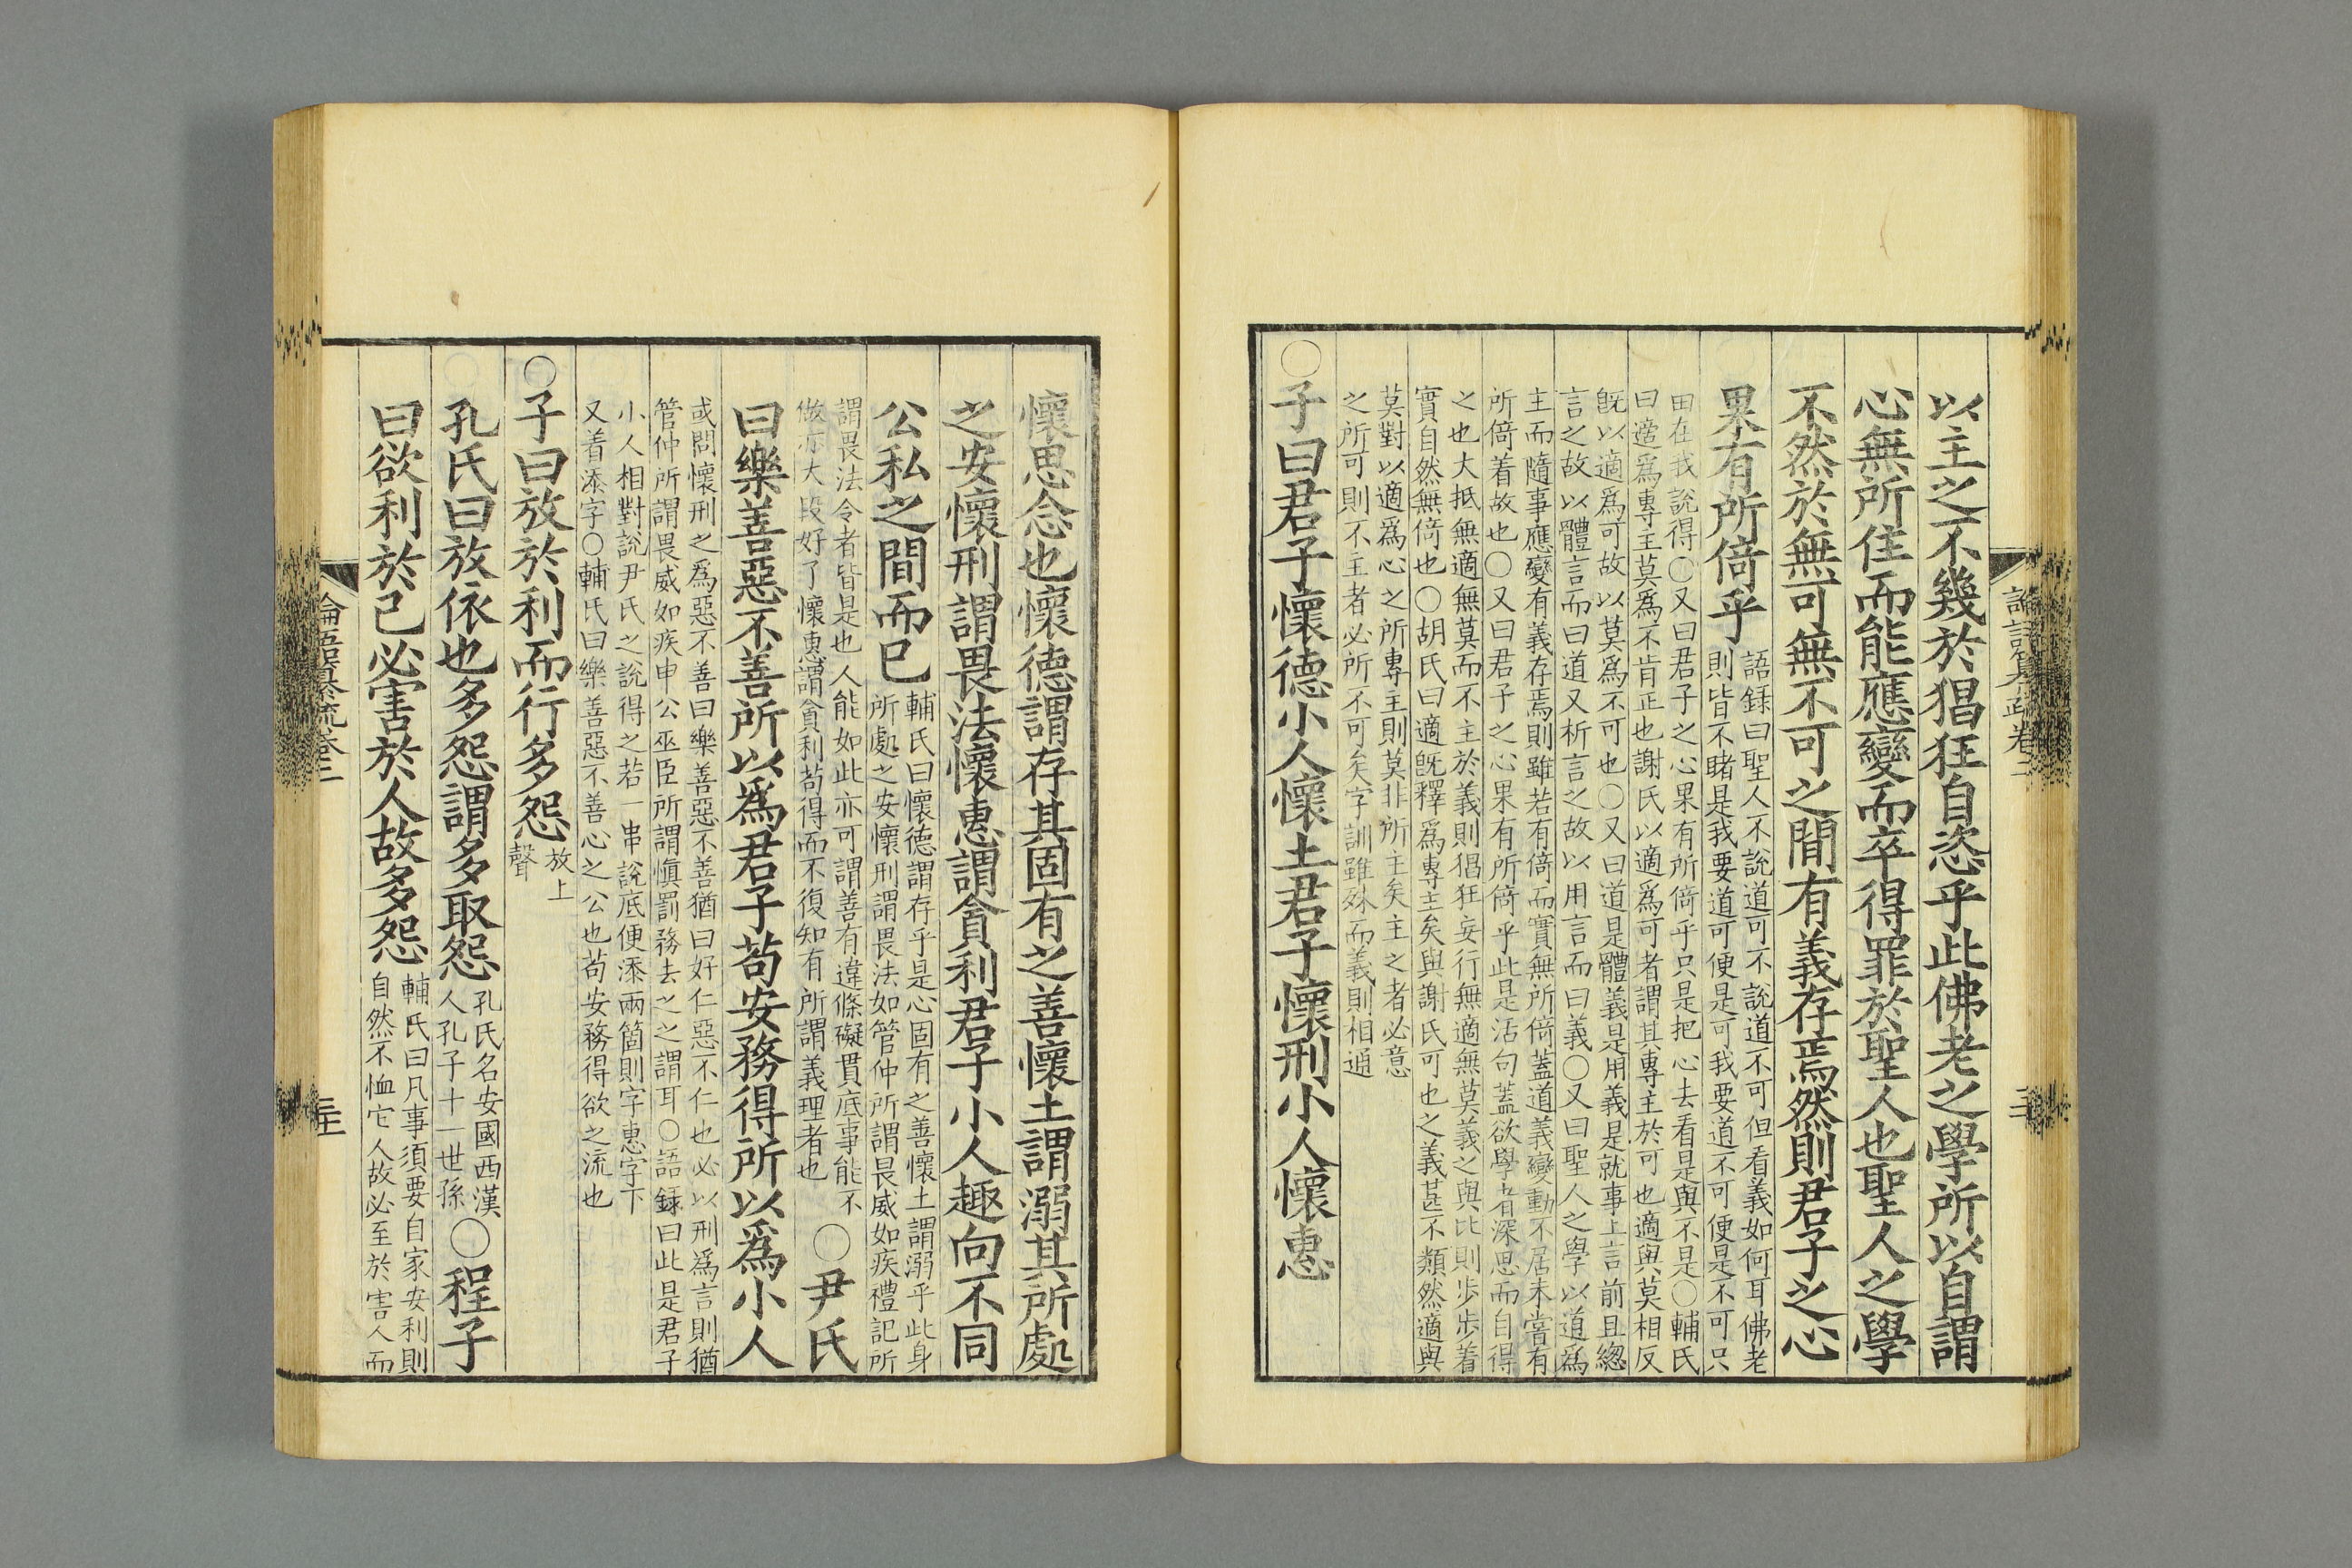 以主之不幾於猖狂自恣乎此佛老之學所以自謂
心無所住而能應變而卒得罪於聖人也聖人之學
不然於無可無不可之間有義存焉然則君子之心
果有所倚乎
語録曰聖人不說道可不說道不可但看義如何耳佛老
則皆不睹是我要道可便是可我要道不可便是不可只
由在我說得○又曰君子之心果有所倚乎只是把心去看是與不是○輔氏
曰適爲專主莫爲不肯正也謝氏以適爲可者謂其專主於可也適與莫相反
旣以適爲可故以莫爲不可也○又曰道是體義是用義是就事上言前且緫
言之故以體言而曰道又析言之故以用言而曰義○又曰聖人之學以道爲
主而隨事應變有義存焉則雖若有倚而實無所倚蓋道義變動不居未嘗有
所倚着故也○又曰君子之心果有所倚乎此是活句蓋欲學者深思而自得
之也大抵無適無莫而不主於義則猖狂妄行無適無莫義之與比則步步着
實自然無倚也○胡氏曰適旣釋爲專主矣與謝氏可也之義甚不類然適與
莫對以適爲心之所專主則莫非所主矣主之者必意
之所可則不主者必所不可矣字訓雖殊而義則相通
○子曰君子懷德小人懷土君子懷刑小人懷惠
論語纂疏卷二
懷思念也懷德謂存其固有之善懷土謂溺其所處
之安懷刑謂畏法懷惠謂貪利君子小人趣向不同
公私之間而已
輔氏曰懷德謂存乎是心固有之善懷土謂溺乎此身
所處之安懷刑謂畏法如管仲所謂畏威如疾禮記所
謂畏法令者皆是也人能如此亦可謂善有違條礙貫底事能不
做亦大段好了懷惠謂貪利苟得而不復知有所謂義理者也
○尹氏
曰樂善惡不善所以爲君子苟安務得所以爲小人
或問懷刑之爲惡不善曰樂善惡不善猶曰好仁惡不仁也必以刑爲言則猶
管仲所謂畏威如疾申公巫臣所謂愼罰務去之之謂耳○語録曰此是君子
小人相對說尹氏之說得之若一串說底便添兩箇則字惠字下
又着添字○輔氏曰樂善惡不善心之公也苟安務得欲之流也
○子曰放於利而行多怨
放上
聲
孔氏曰放依也多怨謂多取怨
孔氏名安國西漢
人孔子十一世孫
○程子
曰欲利於己必害於人故多怨
輔氏曰凡事須要自家安利則
自然不恤它人故必至於害人而
論語纂疏卷二